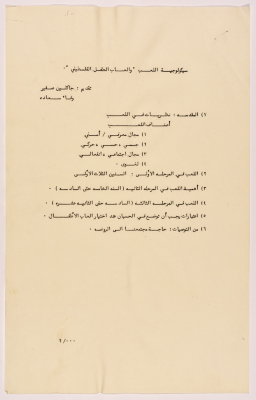 سيكولوجية اللعب "والعاب الطفل الفلسطيني"
تقديم : جاكلين صفير
سعاده
١) المقدمه : نظريات في اللعب
أصناف اللعب
١) مجال معرفي / أمني
٢) جسمي ، حسي ، حركي
٣) مجال اجتماعي ، انفعالي
٤) لغوي ٠
٢) اللعب في المرحله الاولى : السنين الثلاث الاولى
٣) أهمية اللعب في المرحله الثانيه ( السنه الثالثه حتى السادسه ) ٠
٤) اللعب في المرحلة الثالثه ( السادسه حتى الثانيه عشره ) ٠
٥) اعتبارات يجب أن توضع في الحسبان عند اختيار العاب الأطفال ٠
٦) من التوصيات : حاجة مجتمعنا الى الروضه ٠